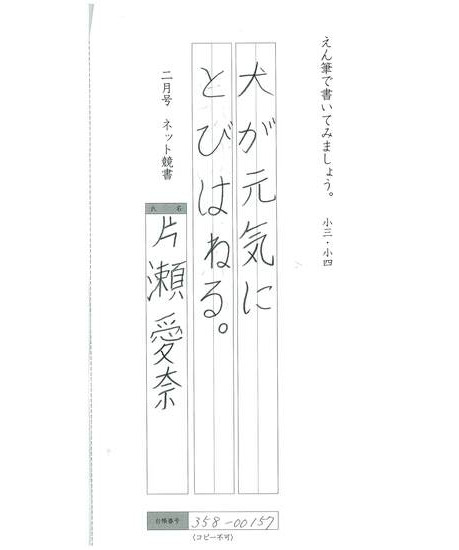 えん筆で書いてみましょう。 小三・小四
犬が元気に
とびはねる。
二月号 ネット競書
氏 名
片瀬愛奈
台帳番号 358-00157
(コピー不可)